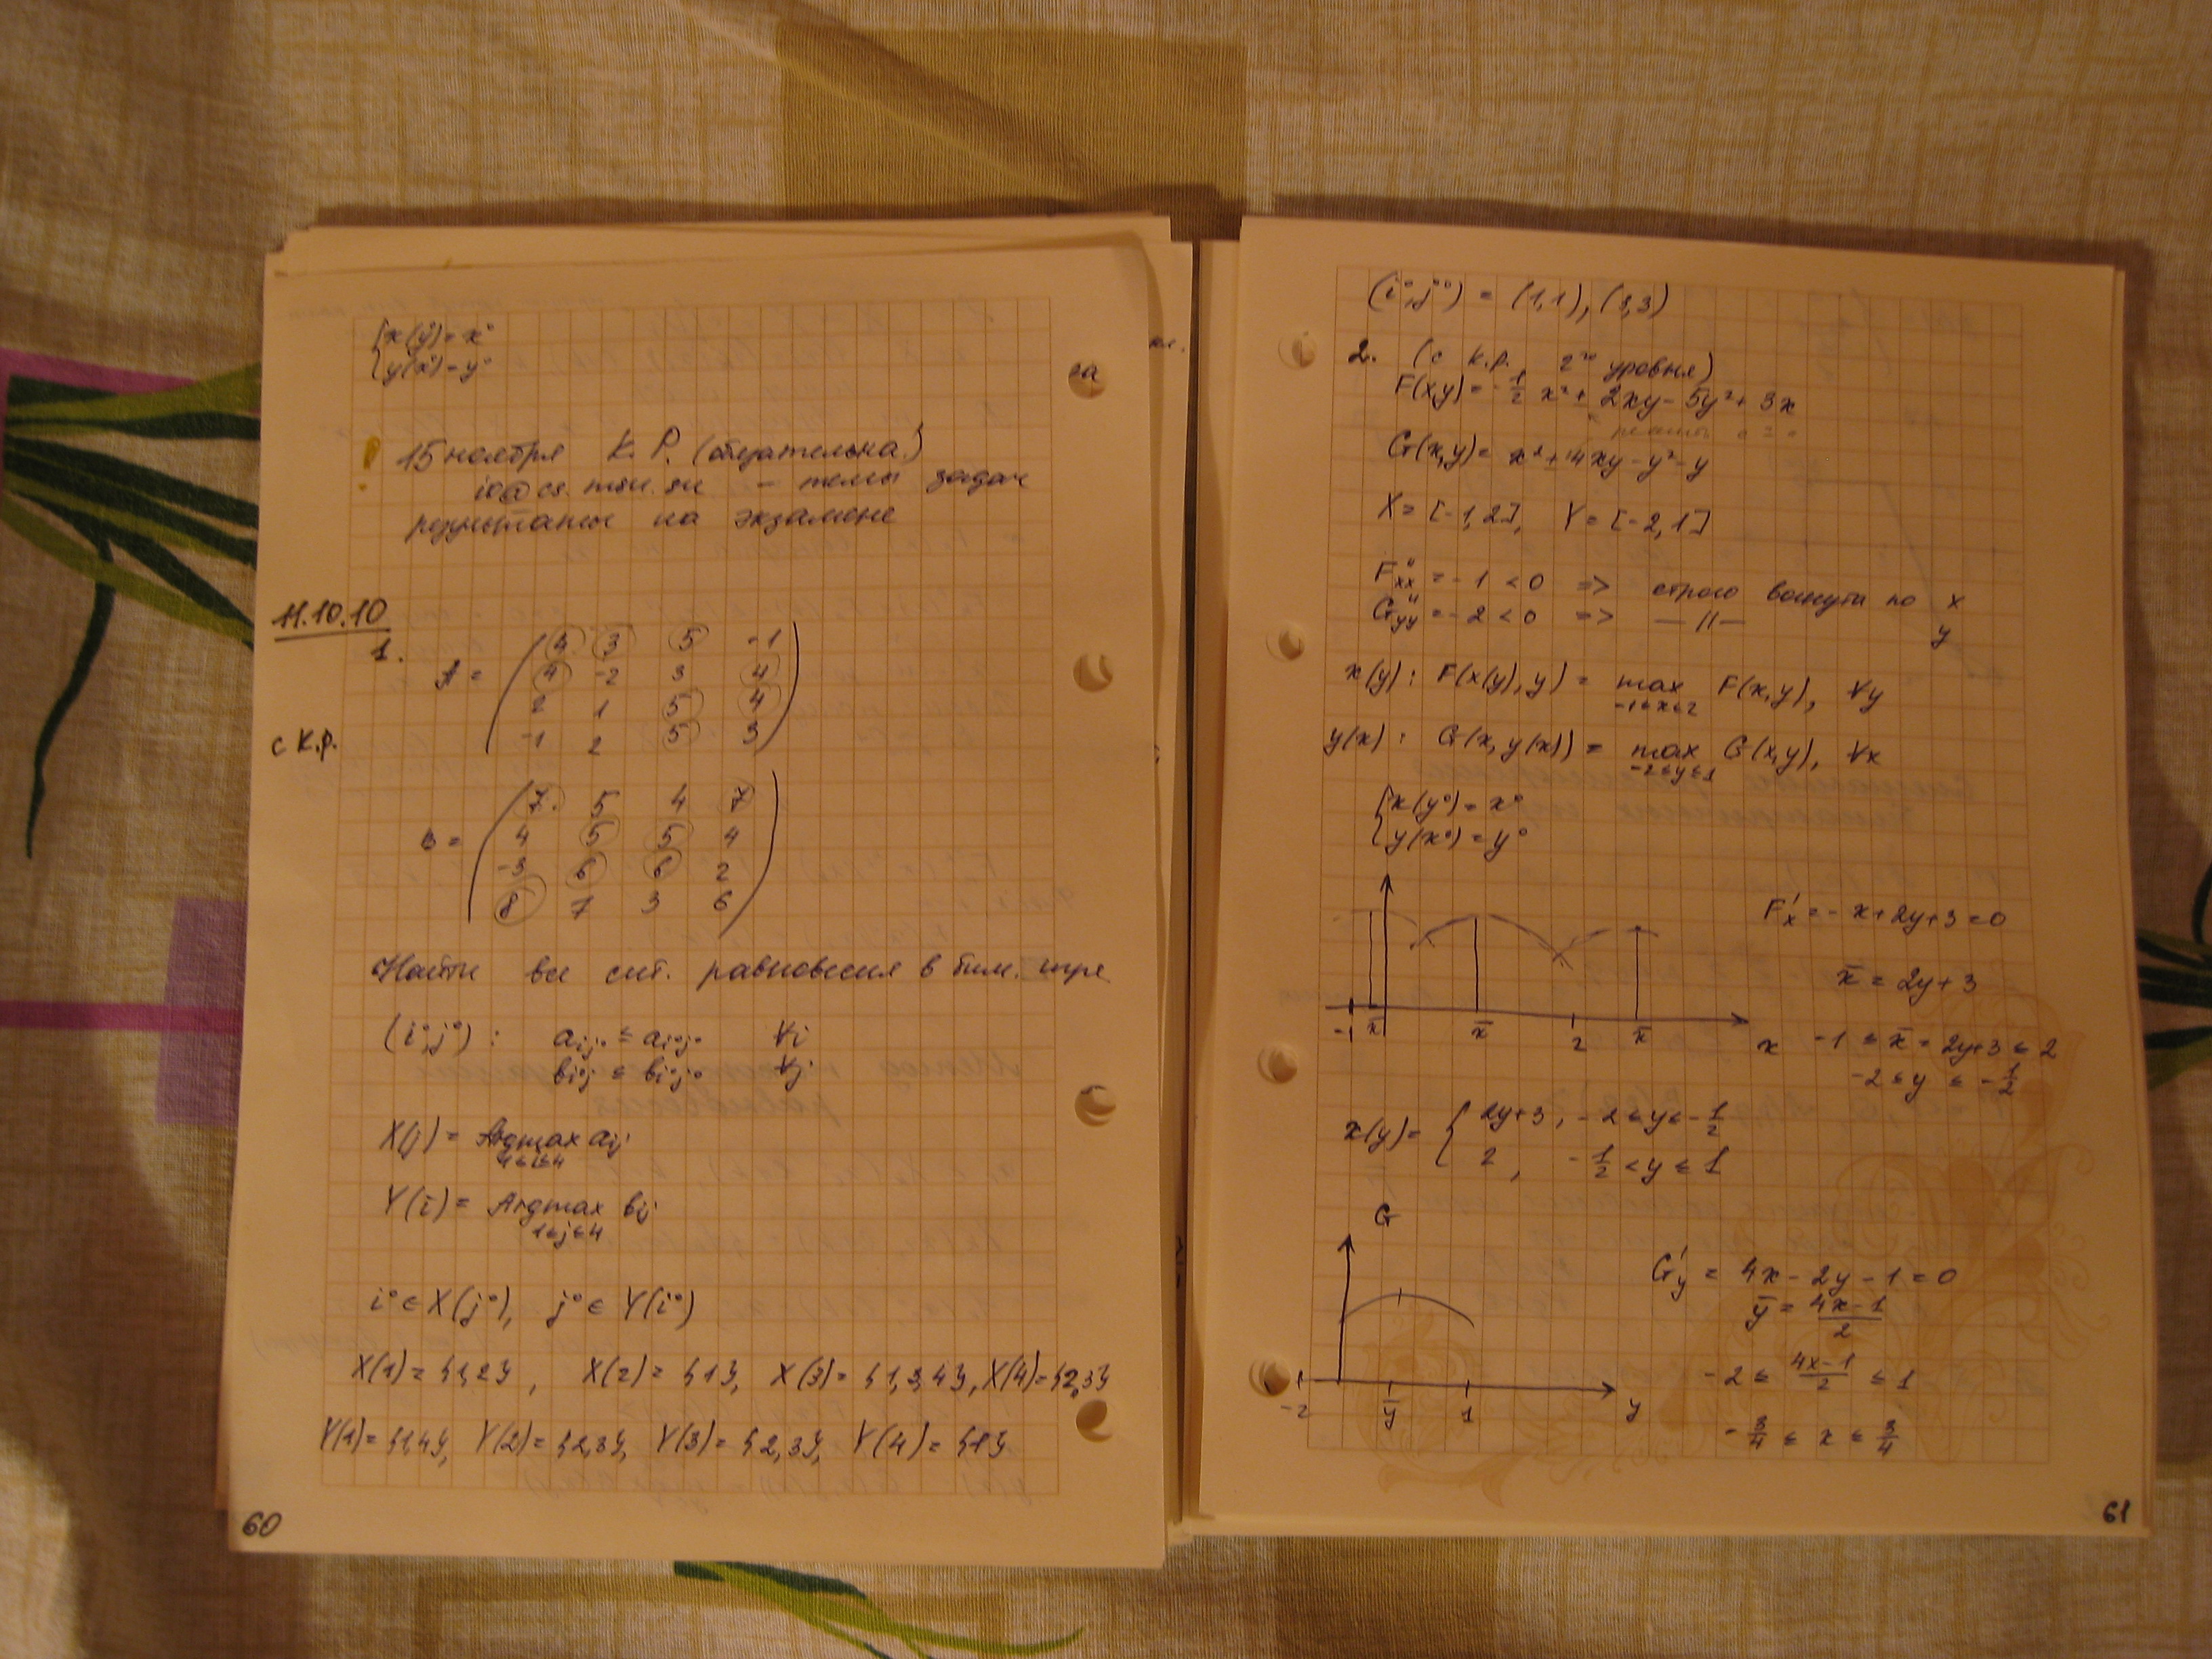 {x(y°)=x°
{y(x°)=y°
! 15 ноября К.Р. (обязательна!)
io@cs.msu.su – темы задач
результаты на экзамене
11.10.10
1.
A = (4 3 5 -1
4 -2 3 4
2 1 5 4
-1 2 5 3)
с К.Р.
B = (7 5 4 7
4 5 5 4
-3 6 6 2
8 7 3 6)
Найти все сит. равновесия в бим. игре
(i°,j°) : a_{ij°} ≤ a_{i°j°} ∀i
b_{i°j} ≤ b_{i°j°} ∀j
X(j) = Argmax a_{ij}
1≤i≤4
Y(i) = Argmax b_{ij}
1≤j≤4
i° ∈ X(j°), j° ∈ Y(i°)
X(1) = {1,2}, X(2) = {1}, X(3) = {1,3,4}, X(4) = {2,3}
Y(1) = {1,4}, Y(2) = {2,3}, Y(3) = {2,3}, Y(4) = {1}
60
(i°,j°) = (1,1), (3,3)
2. (с к.р. 2го уровня)
F(x,y) = -1/2 x² + 2xy - 5y² + 3x
G(x,y) = x² + 4xy - y² - y
X = [-1,2], Y = [-2,1]
F''xx = -1 < 0 => строго вогнута по x
G''yy = -2 < 0 => —||— y
x(y) : F(x(y),y) = max F(x,y), ∀y
-1≤x≤2
y(x) : G(x,y(x)) = max G(x,y), ∀x
-2≤y≤1
{x(y°) = x°
{y(x°) = y°
F'x = -x+2y+3=0
x̄ = 2y+3
-1 x̄ x̄ 2 x̄ x
-1 ≤ x̄ = 2y+3 ≤ 2
-2 ≤ y ≤ -1/2
x(y) = { 2y+3, -2≤y≤-1/2
2, -1/2 < y ≤ 1
G
G'y = 4x-2y-1=0
ȳ = (4x-1)/2
-2 ≤ (4x-1)/2 ≤ 1
-2 ȳ 1 y
-3/4 ≤ x ≤ 3/4
61